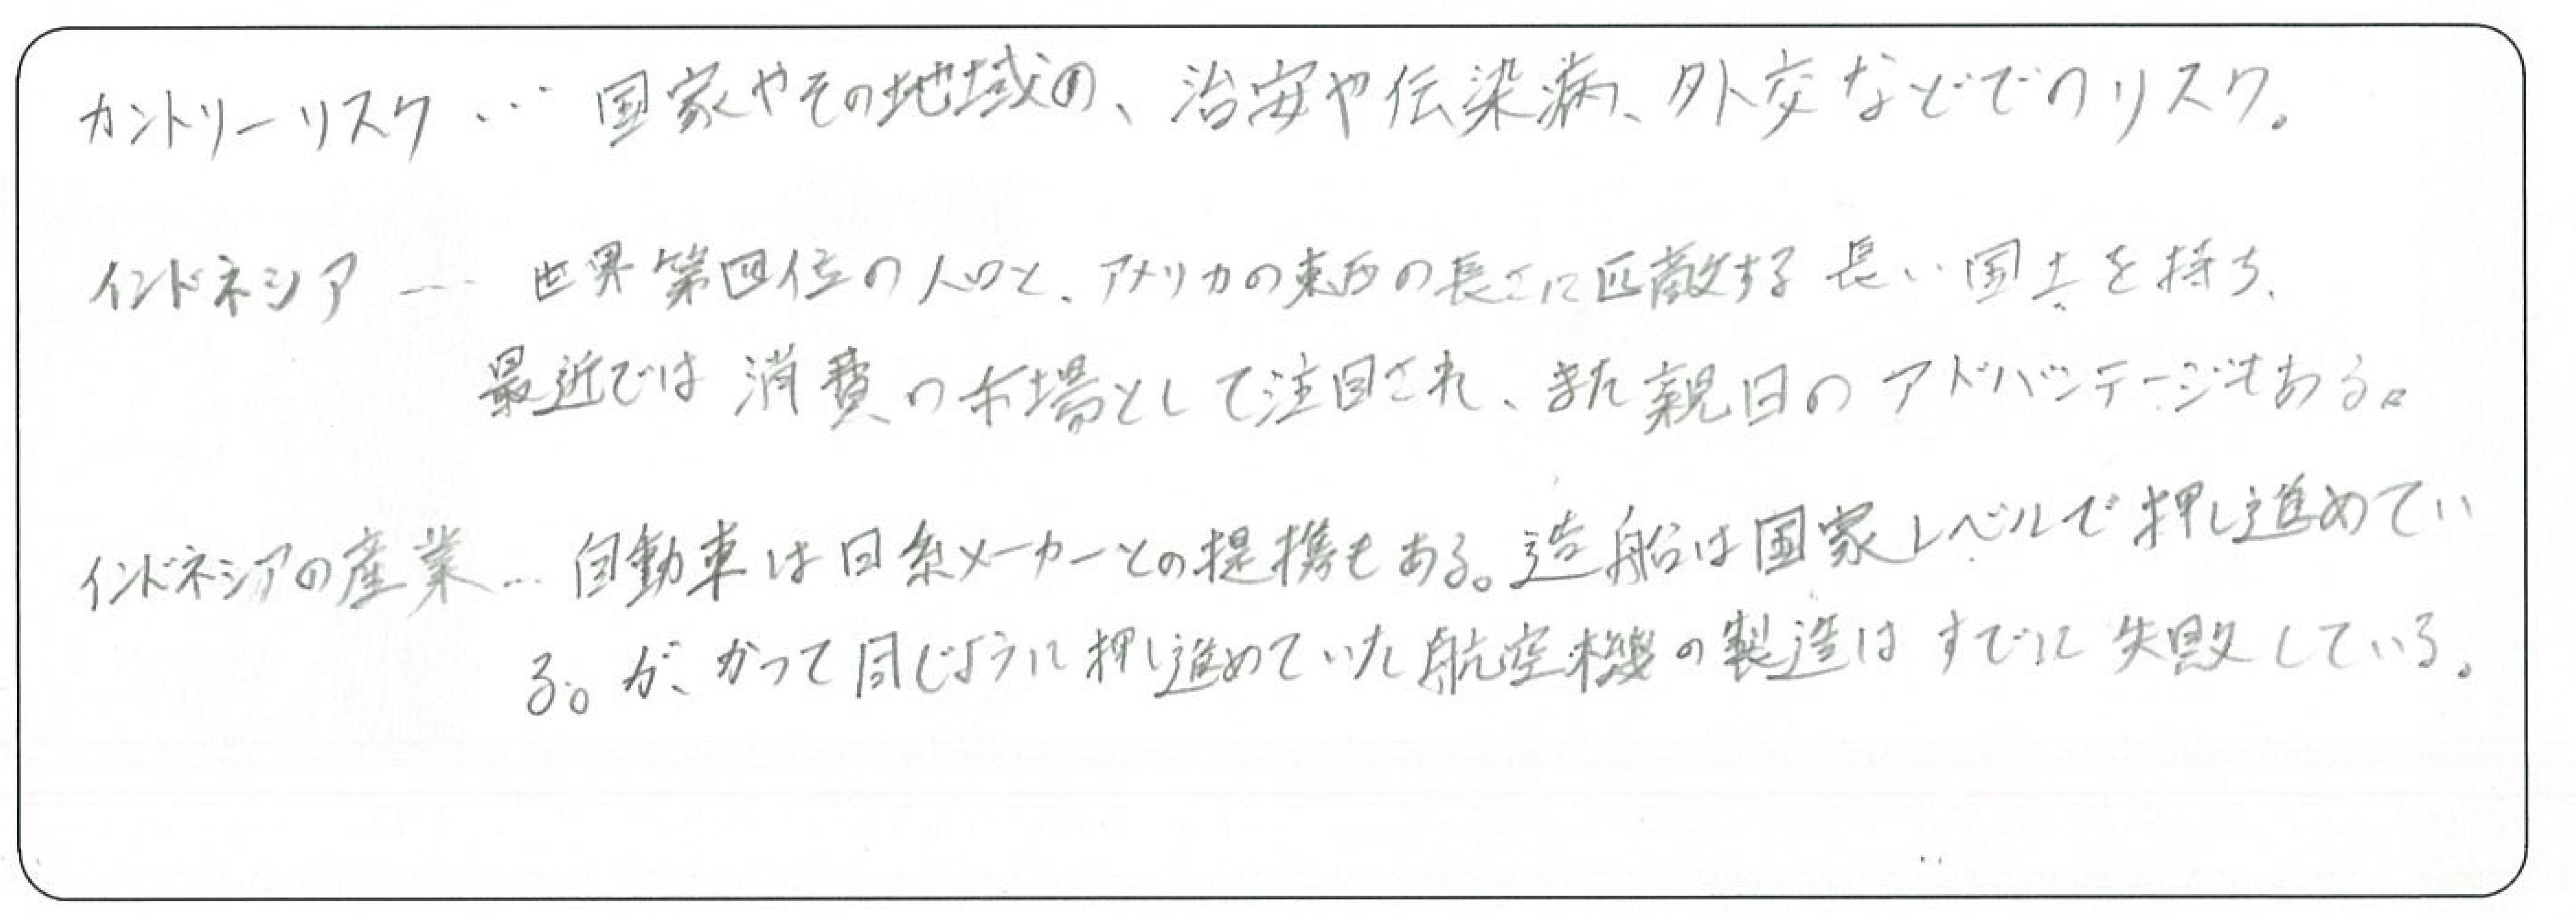 カントリーリスク … 国家やその地域の、治安や伝染病、外交などでのリスク。
インドネシア … 世界第四位の人口と、アメリカの東西の長さに匹敵する長い国土を持ち、
最近では消費の市場として注目され、また親日のアドバンテージもある。
インドネシアの産業 … 自動車は日系メーカーとの提携もある。造船は国家レベルで押し進めてい
る。が、かつて同じように押し進めていた航空機の製造はすでに失敗している。